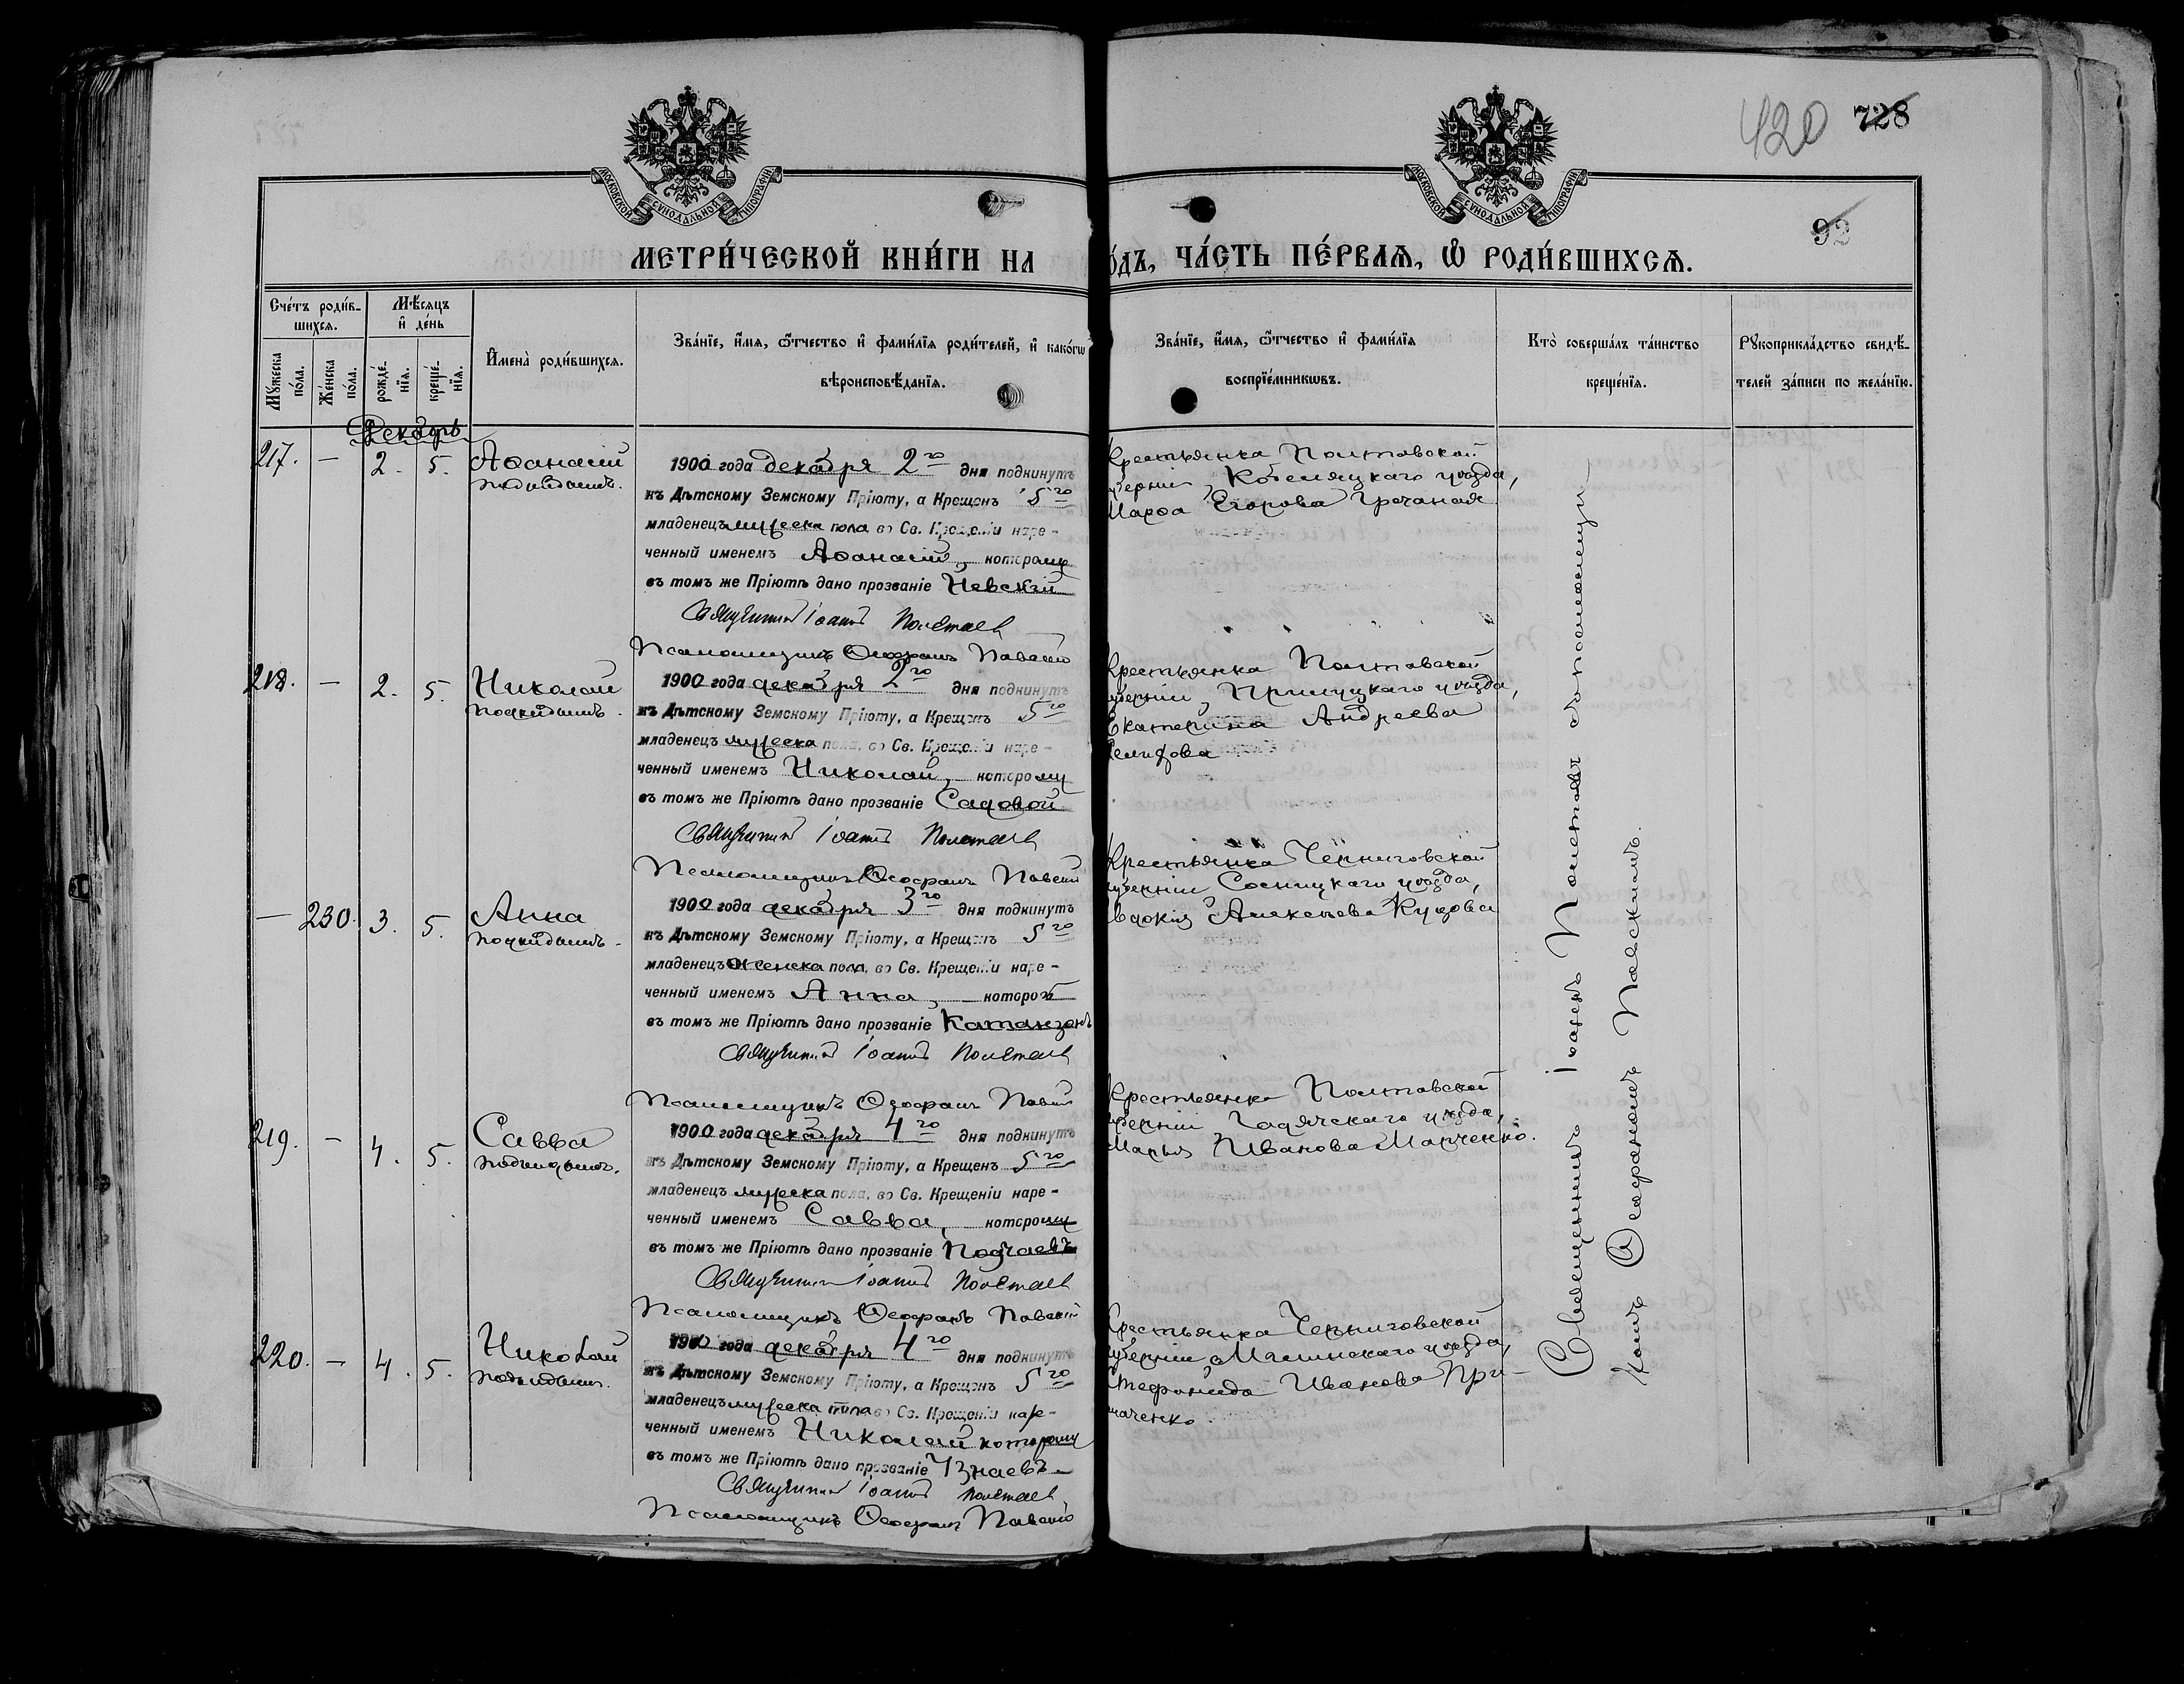 420 728
92
МОСКОВСКОЙ СУНОДАЛЬНОЙ ТИПОГРАФИИ
МОСКОВСКОЙ СУНОДАЛЬНОЙ ТИПОГРАФИИ
МЕТРИ́ЧЕСКОЙ КНИ́ГИ НА
О́ДЪ, ЧА́СТЬ ПЕ́РВАЯ, Ѡ РОДИ́ВШИХСЯ.
Сче́тъ роди́в-
шихся.
Мѣсяцъ
и҆ де́нь
Му́жеска
по́ла.
Же́нска
по́ла.
рожде́-
нїя.
креще́-
нїя.
И҆мена̀ роди́вшихся.
Зва́нїе, и҆́мя, ѻ҆́тчество и҆ фами́лїя роди́телей, и҆ како́гѡ
вѣроисповѣ́данїя.
Зва́нїе, и҆́мя, ѻ҆́тчество и҆ фами́лїя
воспрїе́мникѡвъ.
Кто̀ соверша́лъ та́инство
креще́нїя.
Рꙋкоприкла́дство свидѣ́-
телей за́писи по жела́нїю.
Декабрь
217. — 2. 5. Аѳанасій
подкидышъ.
1900 года декабря 2го дня подкинутъ
къ Дѣтскому Земскому Пріюту, а Крещенъ 5го
младенецъ мужеска пола, во Св. Крещеніи наре-
ченный именемъ Аѳанасій, которому
въ томъ же Пріютѣ дано прозваніе Невскій
Священникъ Іоаннъ Полетаевъ
Псаломщикъ Ѳеофанъ Павскій
Крестьянка Полтавской
губерніи, Кобеляцкаго уѣзда,
Марѳа Егорова Гречаная
218. — 2. 5. Николай
подкидышъ.
1900 года декабря 2го дня подкинутъ
къ Дѣтскому Земскому Пріюту, а Крещенъ 5го
младенецъ мужеска пола, во Св. Крещеніи наре-
ченный именемъ Николай, которому
въ томъ же Пріютѣ дано прозваніе Садовой
Священникъ Іоаннъ Полетаевъ
Псаломщикъ Ѳеофанъ Павскій
Крестьянка Полтавской
губерніи, Прилуцкаго уѣзда,
Екатерина Андреева
— 230. 3. 5. Анна
подкидышъ.
1900 года декабря 3го дня подкинутъ
къ Дѣтскому Земскому Пріюту, а Крещенъ 5го
младенецъ женска пола, во Св. Крещеніи наре-
ченный именемъ Анна, которой
въ томъ же Пріютѣ дано прозваніе
Священникъ Іоаннъ Полетаевъ
Псаломщикъ Ѳеофанъ Павскій
Крестьянка Черниговской
губерніи Сосницкаго уѣзда,
Евдокія Алексѣева
219. — 4. 5. Савва
подкидышъ.
1900 года декабря 4го дня подкинутъ
къ Дѣтскому Земскому Пріюту, а Крещенъ 5го
младенецъ мужеска пола, во Св. Крещеніи наре-
ченный именемъ Савва, которому
въ томъ же Пріютѣ дано прозваніе
Священникъ Іоаннъ Полетаевъ
Псаломщикъ Ѳеофанъ Павскій
Крестьянка Полтавской
губерніи Гадячскаго уѣзда,
Марья Иванова Марченко.
220. — 4. 5. Николай
подкидышъ.
1900 года декабря 4го дня подкинутъ
къ Дѣтскому Земскому Пріюту, а Крещенъ 5го
младенецъ мужеска пола во Св. Крещеніи наре-
ченный именемъ Николай которому
въ томъ же Пріютѣ дано прозваніе Узнаевъ
Священникъ Іоаннъ Полетаевъ
Псаломщикъ Ѳеофанъ Павскій
Крестьянка Черниговской
губерніи, Мглинскаго уѣзда,
Стефанида Иванова При-
Священникъ Іоаннъ Полетаевъ съ псаломщи-
комъ Ѳеофаномъ Павскимъ.